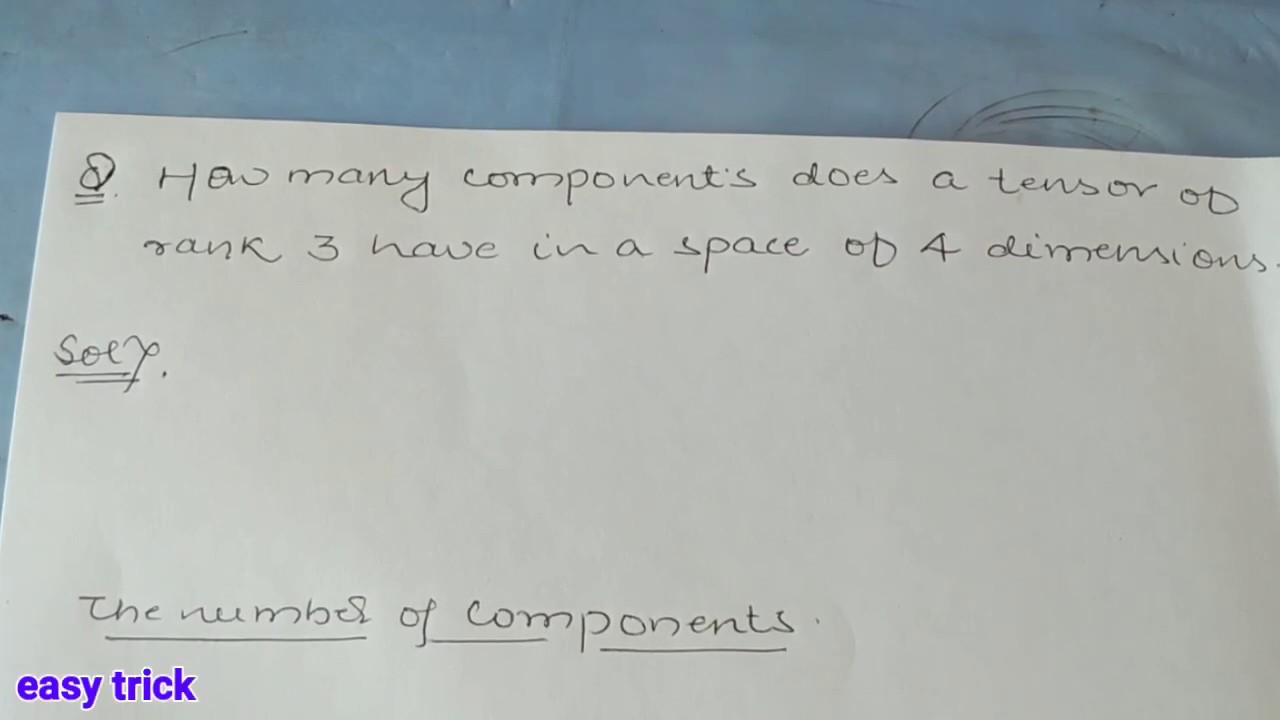 Q. How many component's does a tensor of
rank 3 have in a space of 4 dimensions.
Soln.
The number of components.
easy trick